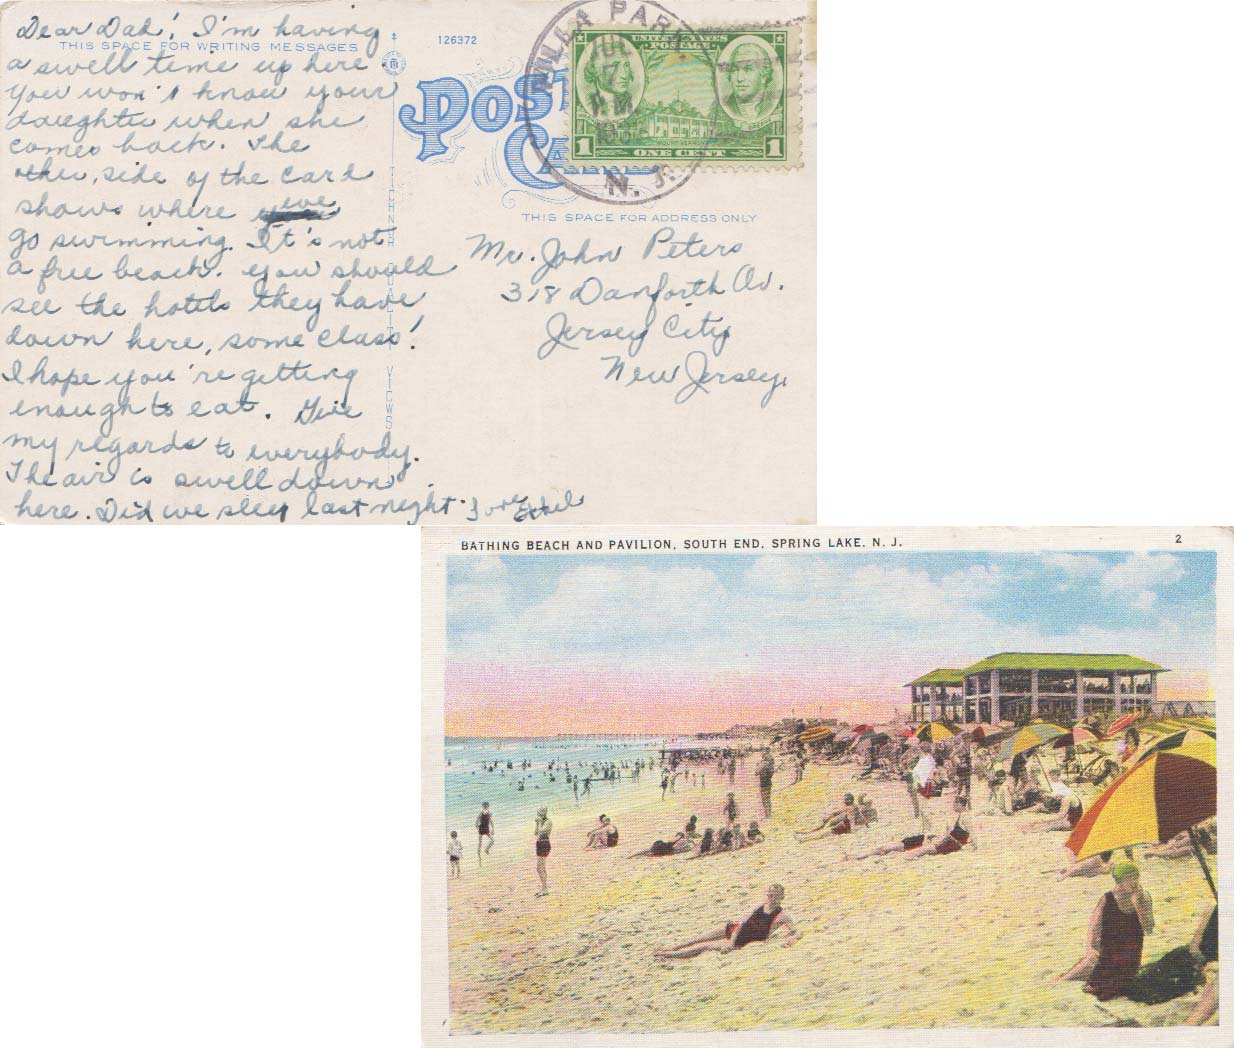 Dear Dad! I'm having
THIS SPACE FOR WRITING MESSAGES
a swell time up here.
You won't know your
daughter when she
comes back. The
other side of the card
shows where we
go swimming. It's not
a free beach. You should
see the hotels they have
down here, some class!
I hope you're getting
enough to eat. Give
my regards to everybody.
The air is swell down
here. Did we sleep last night.
Love Ethel
126372
POST
CA
TICHNOR QUALITY VIEWS
VILLA PARK.
JUL
7
N. J.
UNITED STATES
POSTAGE
MOUNT VERNON
1 ONE CENT 1
THIS SPACE FOR ADDRESS ONLY
Mr. John Peters
318 Danforth Av.
Jersey City
New Jersey.
BATHING BEACH AND PAVILION, SOUTH END, SPRING LAKE, N. J.
2